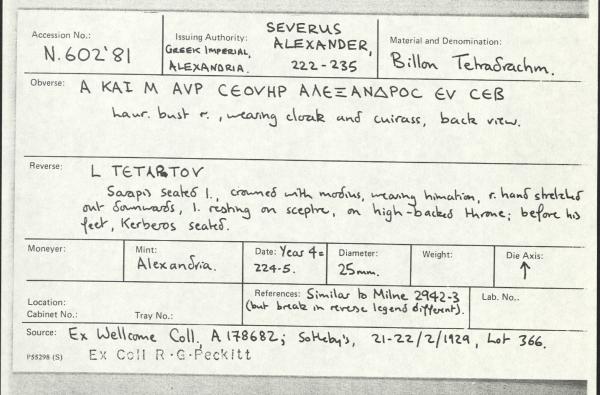 Accession No.: N.602'81
Issuing Authority: GREEK IMPERIAL, ALEXANDRIA.
SEVERUS ALEXANDER, 222-235
Material and Denomination: Billon Tetradrachm.
Obverse: A KAI M AVP CEOVHP AΛEΞANΔPOC EV CEB
Laur. bust r., wearing cloak and cuirass, back view.
Reverse: L TETAPTOV
Sarapis seated l., crowned with modius, wearing himation, r. hand stretched
out downwards, l. resting on sceptre, on high-backed throne; before his
feet, Kerberos seated.
Moneyer:
Mint: Alexandria.
Date: Year 4 = 224-5.
Diameter: 25mm.
Weight:
Die Axis: ↑
Location:
Cabinet No.: Tray No.:
References: Similar to Milne 2942-3
(but break in reverse legend different).
Lab. No..
Source: Ex Wellcome Coll., A 178682; Sotheby's, 21-22/2/1929, Lot 366.
P55298 (S) Ex Coll R·G·Peckitt